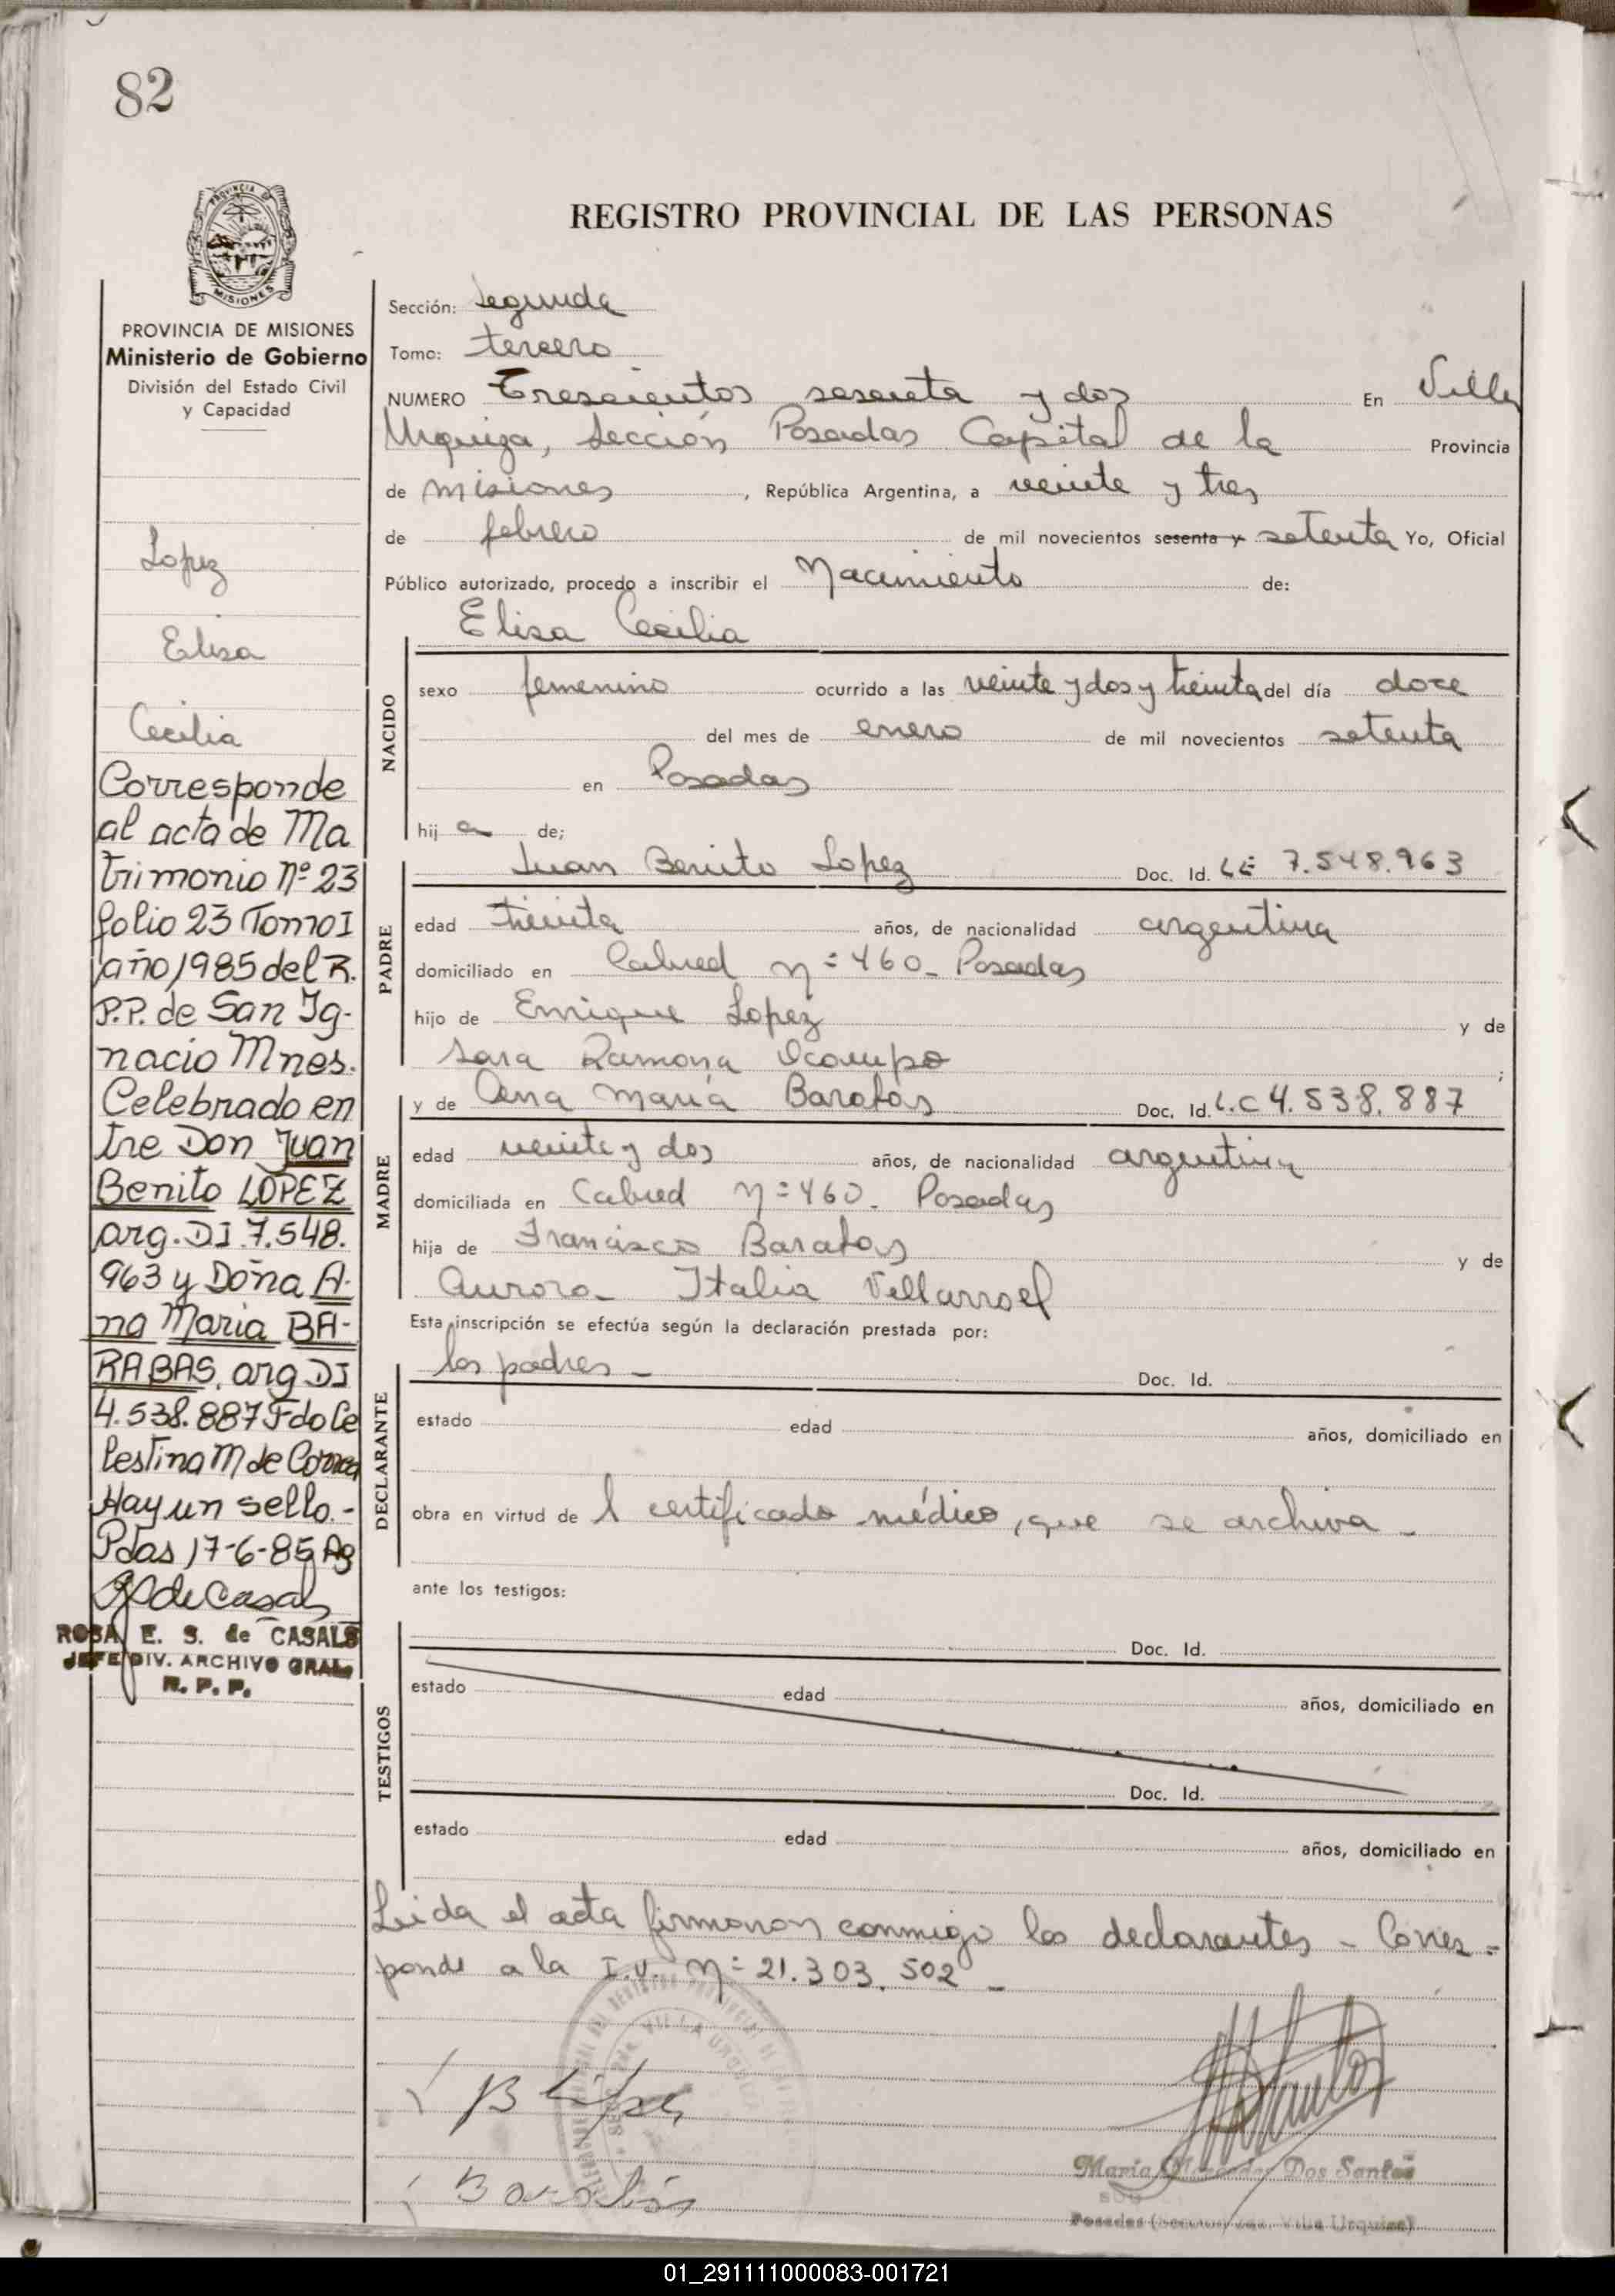 82
PROVINCIA DE
MISIONES
REGISTRO PROVINCIAL DE LAS PERSONAS
PROVINCIA DE MISIONES
Ministerio de Gobierno
División del Estado Civil
y Capacidad
Lopez
Elisa
Cecilia
Corresponde
al acta de Ma
trimonio Nº 23
folio 23 Tomo I
año 1985 del R.
P.P. de San Ig-
nacio Mnes.
Celebrado en
tre Don Juan
Benito LOPEZ
arg. DI 7.548.
963 y Doña A-
na Maria BA-
RABAS, arg DI
4.538.887 Fdo Ce
lestina M de Correa
Hay un sello.-
Pdas 17-6-85
ROSA E. S. de CASALS
JEFE DIV. ARCHIVO GRAL.
R. P. P.
Sección: Segunda
Tomo: tercero
NUMERO Trescientos sesenta y dos En Villa
Urquiza, Sección Posadas Capital de la Provincia
de misiones, República Argentina, a veinte y tres
de febrero de mil novecientos sesenta y setenta Yo, Oficial
Público autorizado, procedo a inscribir el Nacimiento de:
Elisa Cecilia
NACIDO
sexo femenino ocurrido a las veinte y dos y treinta del día doce
del mes de enero de mil novecientos setenta
en Posadas
hij a de;
Juan Benito Lopez Doc. Id. LE 7.548.963
PADRE
edad treinta años, de nacionalidad argentina
domiciliado en Cabred nº 460_ Posadas
hijo de Enrique Lopez y de
Sara Ramona Ocampo ;
y de Ana maría Barabas Doc. Id. L.C 4.538.887
MADRE
edad veinte y dos años, de nacionalidad argentina
domiciliada en Cabred nº 460_ Posadas
hija de Francisco Barabas y de
Aurora Italia Villarroel
Esta inscripción se efectúa según la declaración prestada por:
los padres_ Doc. Id.
DECLARANTE
estado edad años, domiciliado en
obra en virtud de l certificado médico, que se archiva_
ante los testigos:
Doc. Id.
TESTIGOS
estado edad años, domiciliado en
Doc. Id.
estado edad años, domiciliado en
Leida el acta firmaron conmigo los declarantes_ Corres=
ponde a la I.U. nº 21.303.502_
B López
Barabás
Maria Mercedes Dos Santos
Posadas Villa Urquiza)
01_291111000083-001721